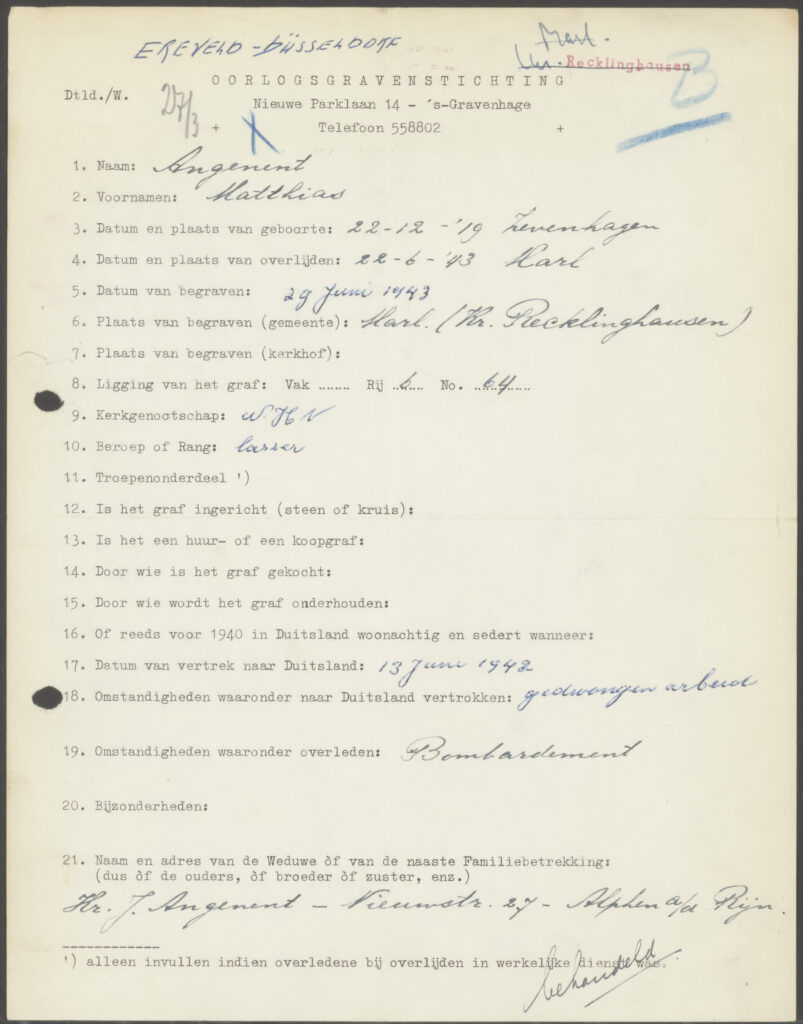 EREVELD - DÜSSELDORF
Marl.
Kr. Recklinghausen
B
OORLOGSGRAVENSTICHTING
Dtld./W.
27/3
Nieuwe Parklaan 14 - 's-Gravenhage
+ Telefoon 558802 +
1. Naam: Angenent
2. Voornamen: Matthias
3. Datum en plaats van geboorte: 22-12-'19 Zevenhagen
4. Datum en plaats van overlijden: 22-6-'43 Marl
5. Datum van begraven: 29 Juni 1943
6. Plaats van begraven (gemeente): Marl. (Kr. Recklinghausen)
7. Plaats van begraven (kerkhof):
8. Ligging van het graf: Vak ........ Rij ..6... No. ...64...
9. Kerkgenootschap: W H N
10. Beroep of Rang: lasser
11. Troepenonderdeel ')
12. Is het graf ingericht (steen of kruis):
13. Is het een huur- of een koopgraf:
14. Door wie is het graf gekocht:
15. Door wie wordt het graf onderhouden:
16. Of reeds voor 1940 in Duitsland woonachtig en sedert wanneer:
17. Datum van vertrek naar Duitsland: 13 Juni 1942
18. Omstandigheden waaronder naar Duitsland vertrokken: gedwongen arbeid
19. Omstandigheden waaronder overleden: Bombardement
20. Bijzonderheden:
21. Naam en adres van de Weduwe òf van de naaste Familiebetrekking:
(dus òf de ouders, òf broeder òf zuster, enz.)
Hr. J. Angenent - Nieuwstr. 27 - Alphen a/d Rijn.
') alleen invullen indien overledene bij overlijden in werkelijke dienst was.
behandeld